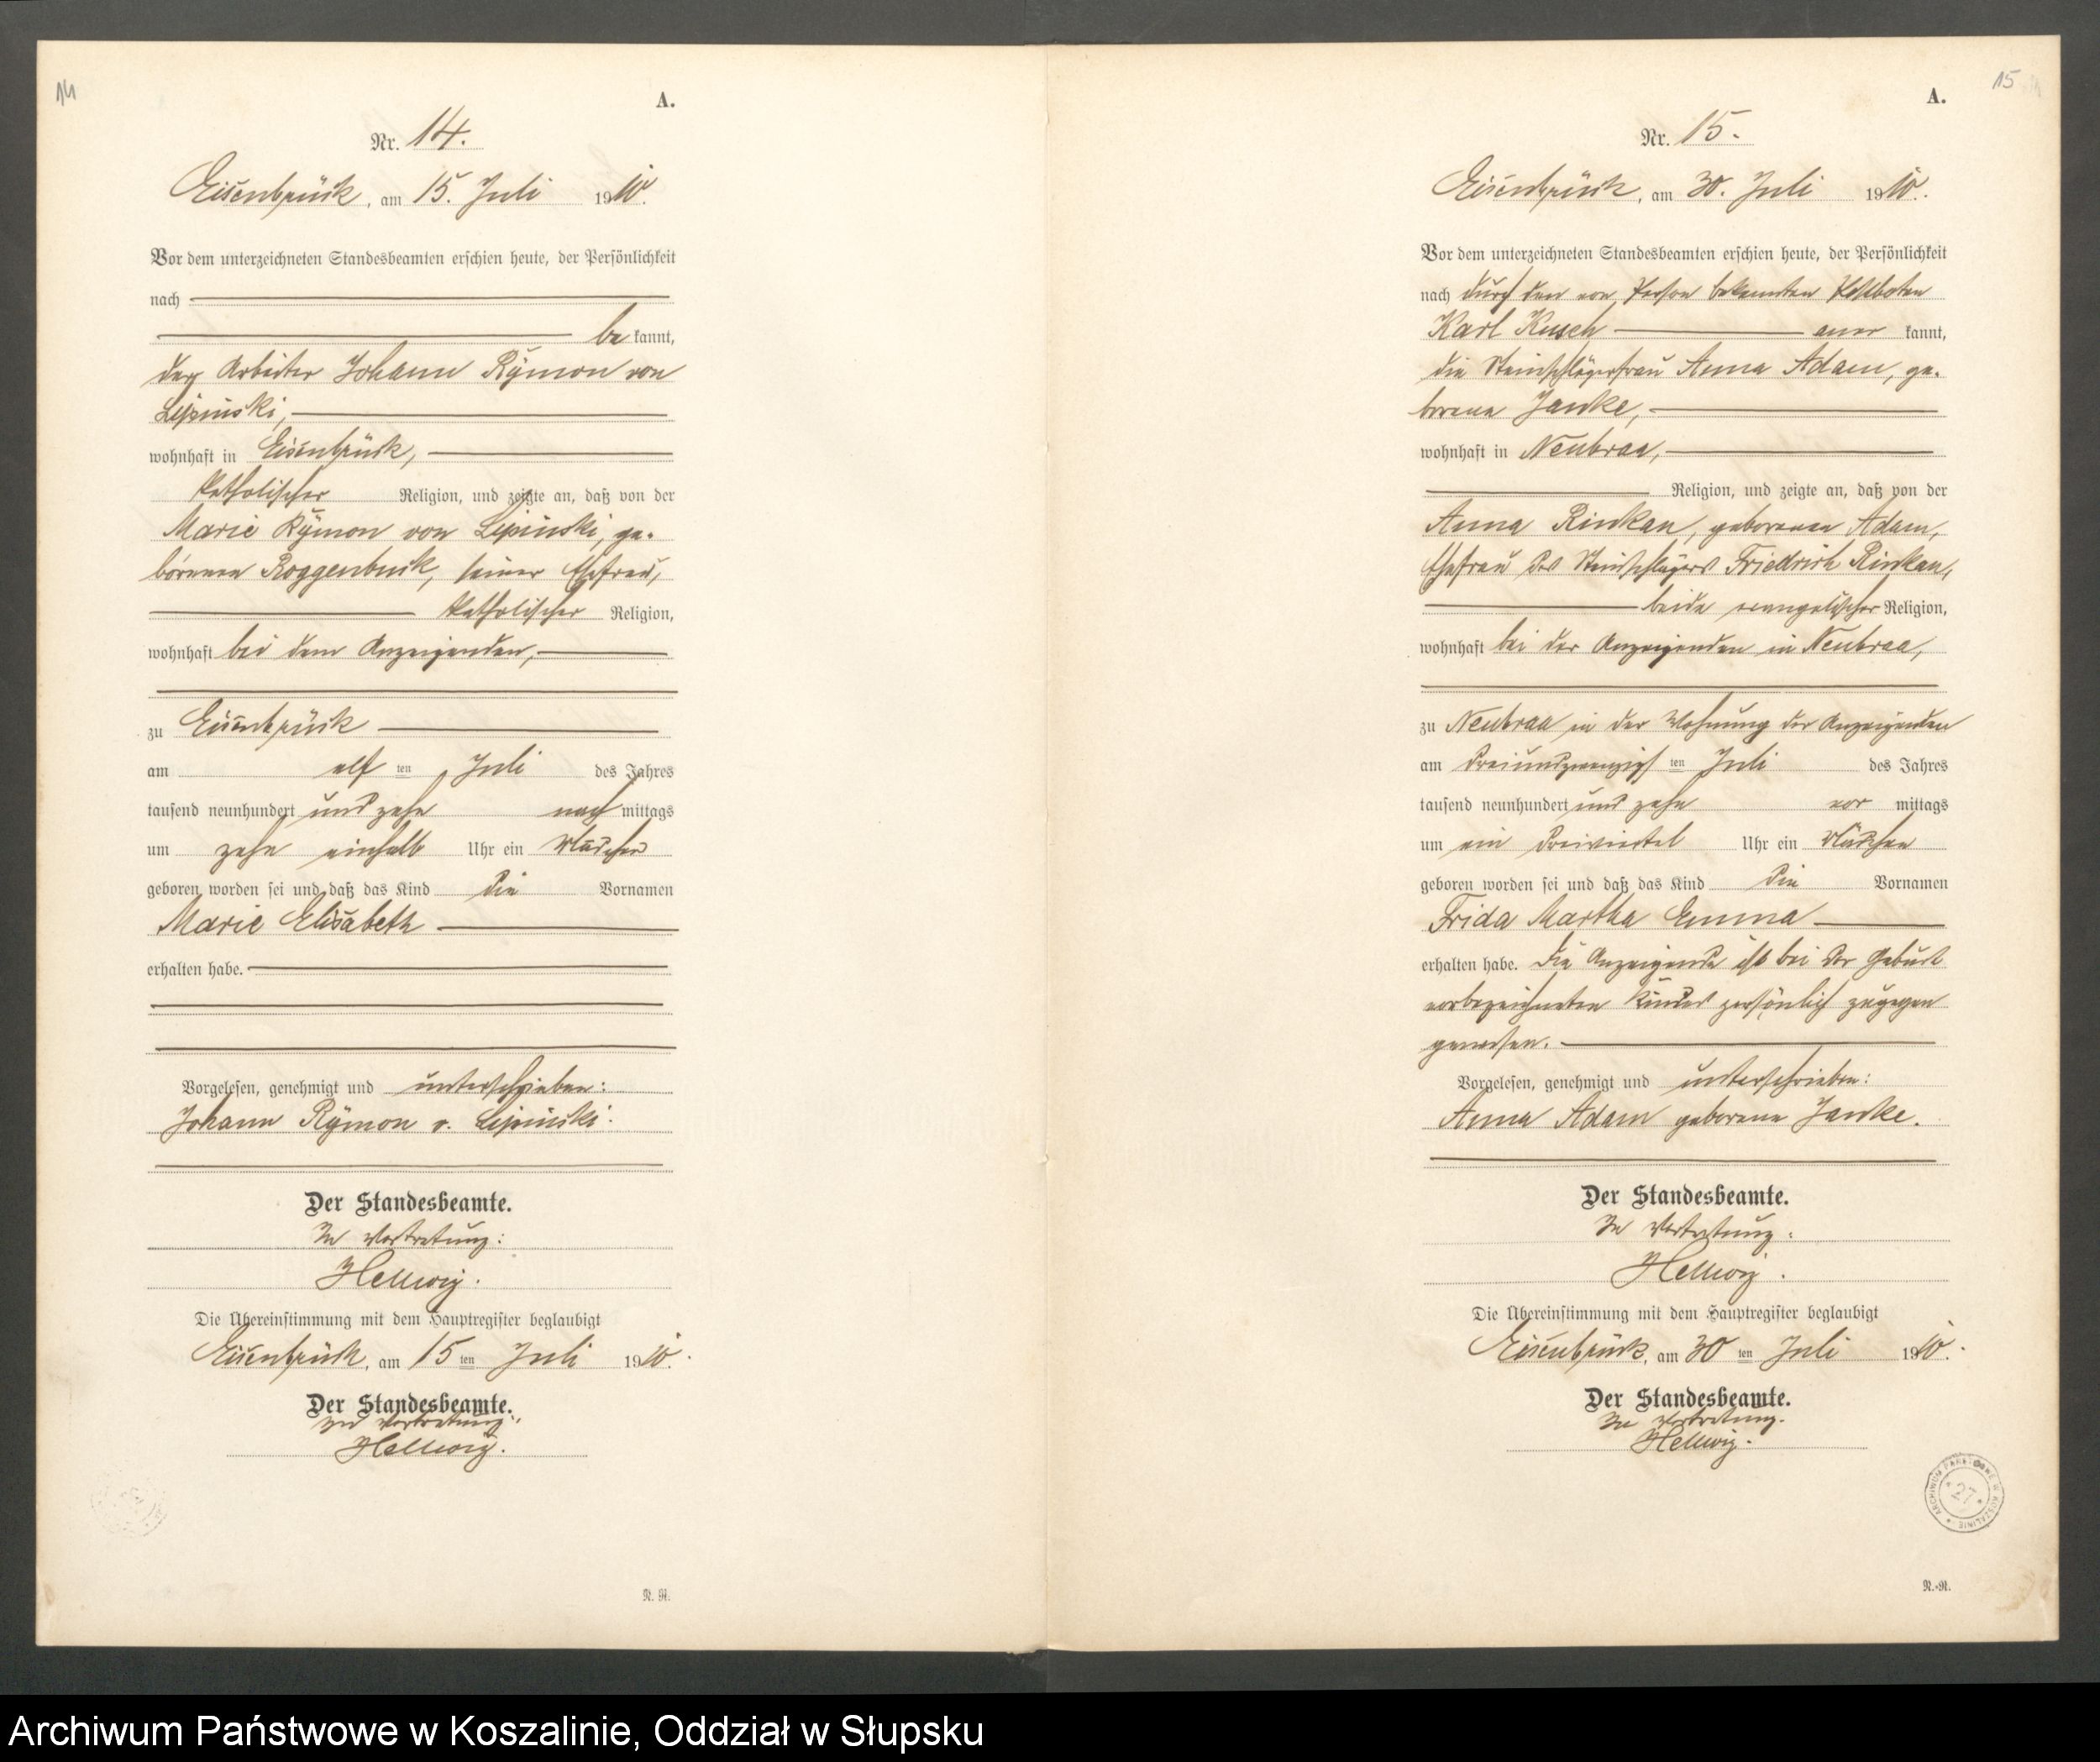 14
A.
Nr. 14.
Eisenbrück, am 15. Juli 1910.
Vor dem unterzeichneten Standesbeamten erschien heute, der Persönlichkeit
nach
be kannt,
der Arbeiter Johann Rÿmon von
Lipinski,
wohnhaft in Eisenbrück,
katholischer Religion, und zeigte an, daß von der
Marie Rÿmon von Lipinski, ge-
borenen Roggenbuck, seiner Ehefrau,
katholischer Religion,
wohnhaft bei dem Anzeigenden,
zu Eisenbrück
am elf ten Juli des Jahres
tausend neunhundert und zehn nach mittags
um zehn einhalb Uhr ein Mädchen
geboren worden sei und daß das Kind die Vornamen
Marie Elisabeth
erhalten habe.
Vorgelesen, genehmigt und unterschrieben:
Johann Rÿmon v. Lipinski.
Der Standesbeamte.
In Vertretung:
Hellwig.
Die Übereinstimmung mit dem Hauptregister beglaubigt
Eisenbrück, am 15 ten Juli 1910.
Der Standesbeamte.
In Vertretung:
Hellwig.
N. N.
15
A.
Nr. 15.
Eisenbrück, am 30. Juli 1910.
Vor dem unterzeichneten Standesbeamten erschien heute, der Persönlichkeit
nach durch den von Person bekannten Postboten
Karl Kusch aner kannt,
die Steinschlägerfrau Anna Adam, ge-
borene Janke,
wohnhaft in Neubraa,
Religion, und zeigte an, daß von der
Anna Rinkan, geborenen Adam,
Ehefrau des Steinschlägers Friedrich Rinkan,
beide evangelischer Religion,
wohnhaft bei der Anzeigenden in Neubraa,
zu Neubraa in der Wohnung der Anzeigenden
am dreiundzwanzigs ten Juli des Jahres
tausend neunhundert und zehn vor mittags
um ein dreiviertel Uhr ein Mädchen
geboren worden sei und daß das Kind die Vornamen
Frida Martha Emma
erhalten habe. Die Anzeigende ist bei der Geburt
vorbezeichneten Kindes persönlich zugegen
gewesen.
Vorgelesen, genehmigt und unterschrieben:
Anna Adam geborene Janke.
Der Standesbeamte.
In Vertretung:
Hellwig.
Die Übereinstimmung mit dem Hauptregister beglaubigt
Eisenbrück, am 30 ten Juli 1910.
Der Standesbeamte.
In Vertretung.
Hellwig.
ARCHIWUM PAŃSTWOWE W KOSZALINIE
* 27 *
N.-N.
Archiwum Państwowe w Koszalinie, Oddział w Słupsku